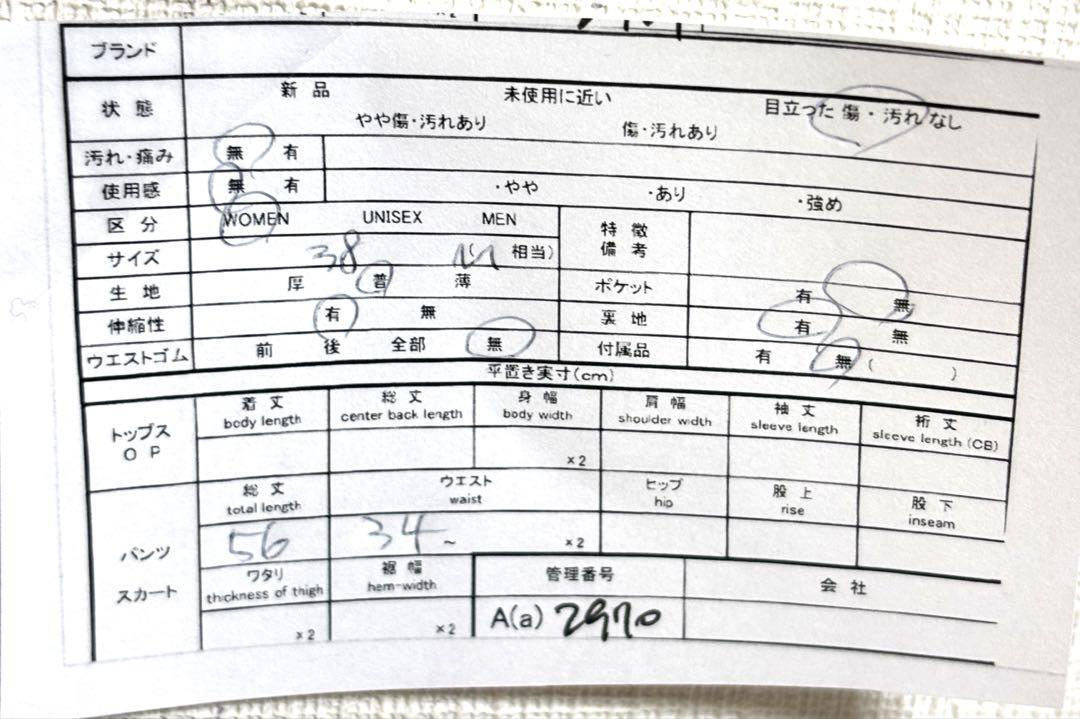 ブランド
状態 新品 未使用に近い 目立った傷・汚れなし
やや傷・汚れあり 傷・汚れあり
汚れ・痛み 無 有
使用感 無 有 ・やや ・あり ・強め
区分 WOMEN UNISEX MEN 特徴備考
サイズ 38 (M 相当)
生地 厚 普 薄 ポケット 有 無
伸縮性 有 無 裏地 有 無
ウエストゴム 前 後 全部 無 付属品 有 無 ( )
平置き実寸(cm)
トップス OP 着丈 総丈 身幅 肩幅 袖丈 裄丈
body length center back length body width shoulder width sleeve length sleeve length (CB)
×2
パンツ スカート 総丈 ウエスト ヒップ 股上 股下
total length waist hip rise inseam
56 34 ~ ×2
ワタリ 裾幅 管理番号 会社
thickness of thigh hem-width
×2 ×2 A(a) 2970